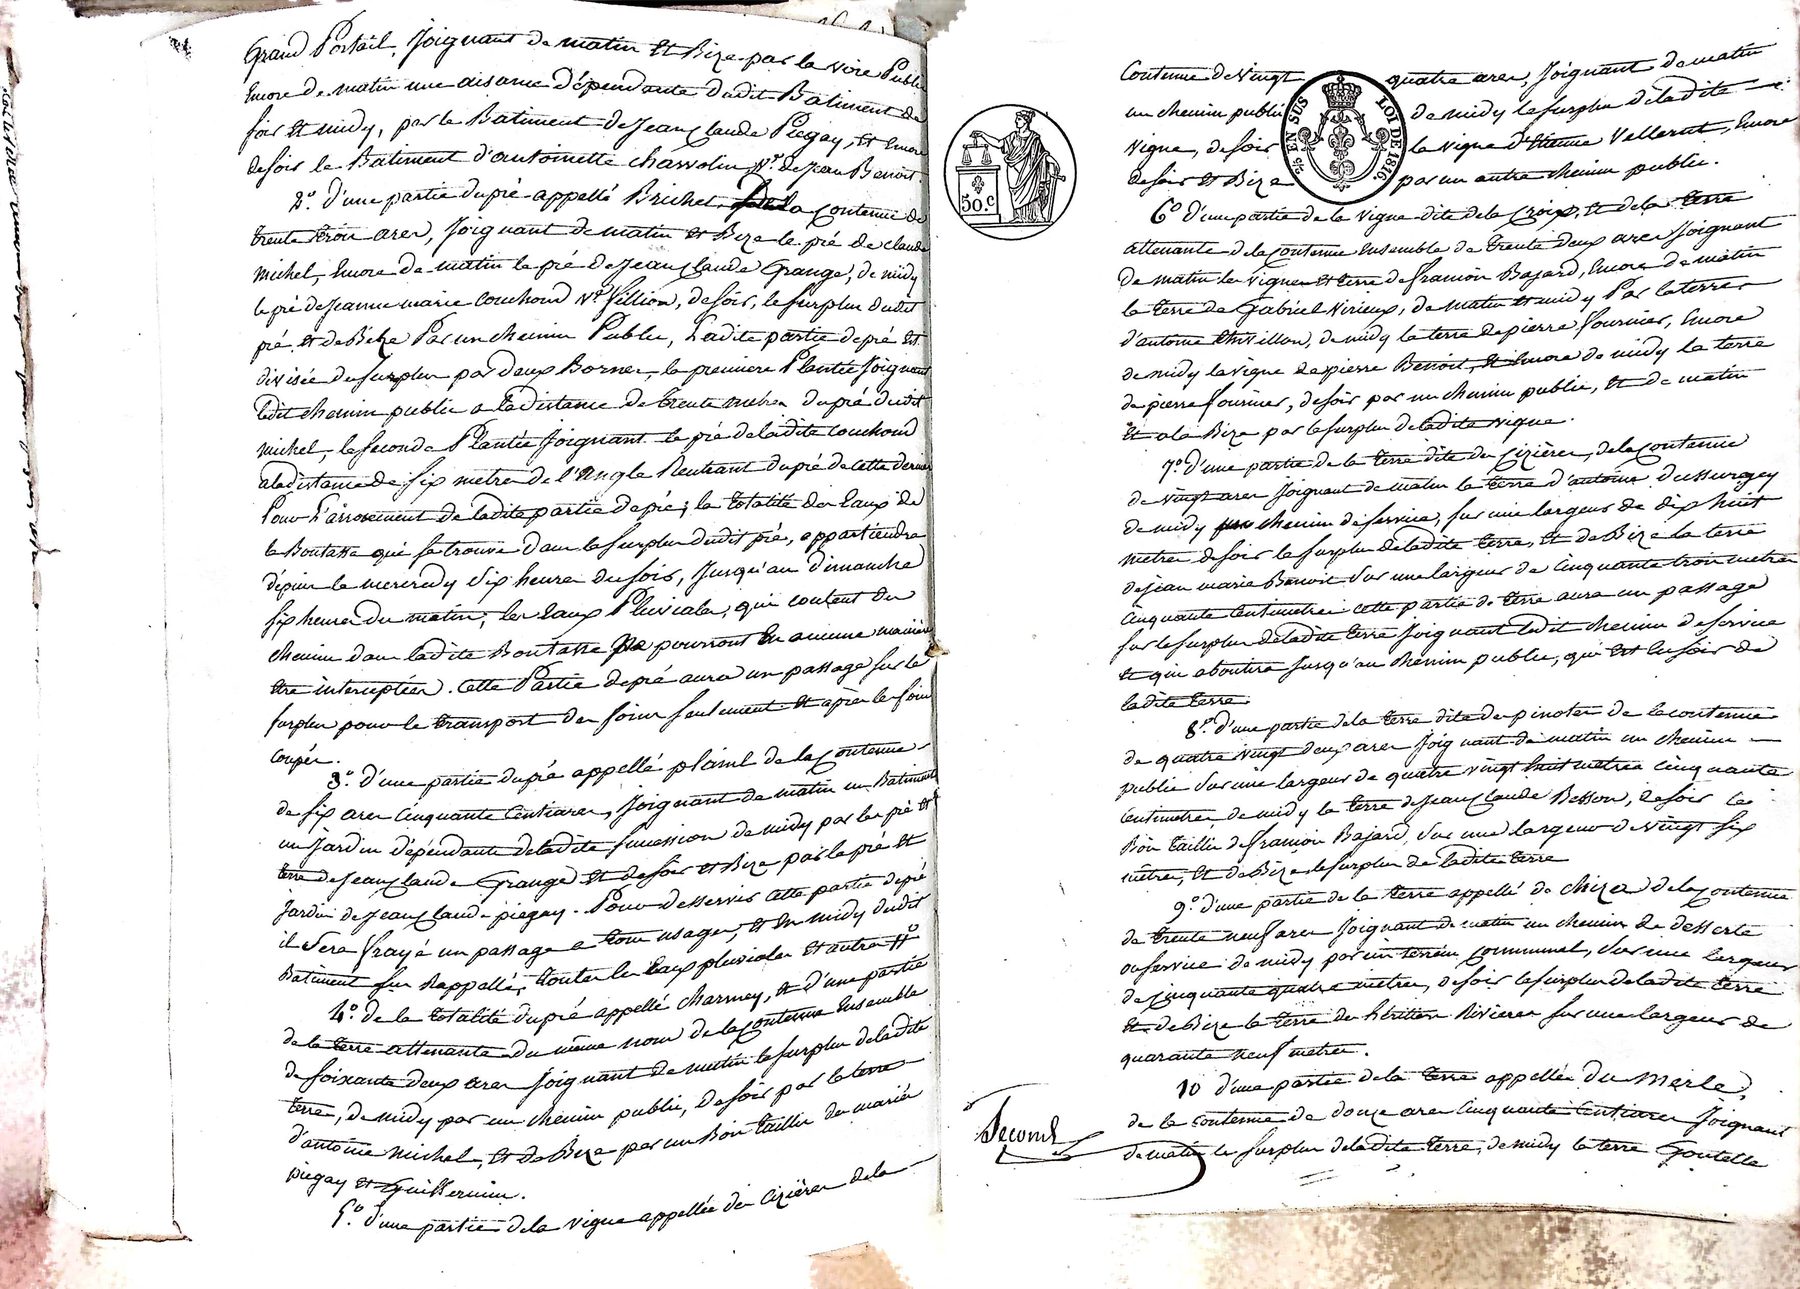 Grand Portail, Joignant de matin et Bize par la voie Publi
Encore de matin une aisance dépendante dudit Batiment de
soir et midy, par le Batiment de Jean Claude Piegay, et Encore
de soir le Batiment d'antoinette chavrolin, Ve. de Jean Benoit.
2°. d'une partie du pré appellé Brichet, de la Contenue de
trente trois ares, Joignant de matin et Bize le pré de claude
michel, Encore de matin le pré de Jean Claude Grange, de midy
le pré de Jeanne marie Couchoud Ve. fillion, de soir, le surplus dudit
pré, et de Bize Par un chemin Public, Ladite partie de pré Est
divisée du surplus par deux Bornes, la premiere Plantée Joignant
ledit chemin public a la distance de trente metres du pré dudit
michel, la seconde Plantée Joignant le pré de ladite Couchoud
a la distance de six metres de l'Angle Rentrant du pré de cette derniere
Pour L'arrosement de ladite partie de pré; la totalité des Eaux de
la Boutasse qui se trouve dans le surplus dudit pré, appartiendra
depuis le mercredy six heures du soir, Jusqu'au dimanche
six heures du matin; les Eaux Pluviales, qui coulent du
chemin dans ladite Boutasse ne pourront En aucune maniere
Etre interceptées. Cette Partie de pré aura un passage sur le
surplus pour le transport des foins seulement et après les foins
coupés.
3°. d'une partie du pré appellé plainl de la Contenue
de six ares Cinquante Centiares, Joignant de matin un Batiment
un jardin dépendants de ladite succession de midy par les pré et
terre de Jean Claude Grange, et de soir et Bize par le pré et
Jardin de Jean Claude piegay. Pour desservir cette partie de pré
il sera frayé un passage a tous usages, et En midy dudit
Batiment sus Rappellé; toutes les Eaux pluviales et autres
4°. de la totalité du pré appellé charmey, et d'une partie
de la terre attenante du même nom de la Contenue Ensemble
de soixante deux ares Joignant de matin le surplus de ladite
terre, de midy par un chemin public, de soir par la terre
d'antoine michel, et de Bize par un Bois taillis des mariés
piegay et Guillermin.
5°. d'une partie de la vigne appellée des Cizières de la
Contenue de Vingt quatre ares, Joignant de matin
un chemin public de midy le surplus de ladite
Vigne, de soir la vigne d'Etienne Vellerut, Encore
de soir et Bize par un autre chemin public.
6° d'une partie de la vigne dite de la Croix, et de la terre
attenante de la Contenue Ensemble de trente deux ares Joignant
de matin les vignes et terre de framçois Bajard, Encore de matin
la terre de Gabriel Virieux, de matin et midy Par la terres
d'antoine thivillon, de midy la terre de pierre fournier, Encore
de midy la vigne de pierre Benoit, et Encore de midy la terre
de pierre fournier, de soir par un chemin public, et de matin
Et a la Bize par le surplus de ladite vigne.
7° d'une partie de la terre dite des Cizières, de la Contenue
de vingt ares Joignant de matin la terre d'antoine dussurgey
de midy un chemin de service, sur une largeur de dix huit
metres de soir le surplus de ladite terre, et de Bize la terre
de jean marie Benoit sur une largeur de Cinquante trois metres
Cinquante Centimetres cette partie de terre aura un passage
sur le surplus de ladite terre Joignant ledit chemin de service
et qui aboutira jusqu'au chemin public, qui est en soir de
ladite terre
8°. d'une partie de la terre dite des pinotes de la contenue
de quatre vingt deux ares Joignant de matin un chemin
public sur une largeur de quatre vingt huit metres Cinquante
Centimetres de midy la terre de Jean Claude Besson, de soir le
Bois taillis de framçois Bajard, sur une largeur de Vingt six
métres, et de Bize le surplus de ladite terre
9°. d'une partie de la terre appellé de chize de la Contenue
de trente neuf ares Joignant de matin un chemin de desserte
ou service de midy par un terrein Communal, sur une largeur
de Cinquante quatre metres, de soir le surplus de ladite terre
et de Bize la terre des héritiers Rivieres sur une largeur de
quarante neuf metres.
10 d'une partie de la terre appellée du merle,
de la contenue de douze ares Cinquante Centiares Joignant
de matin le surplus de ladite terre, de midy la terre Goutelle
Second
50.C
2/10 EN SUS
LOI DE 1816.